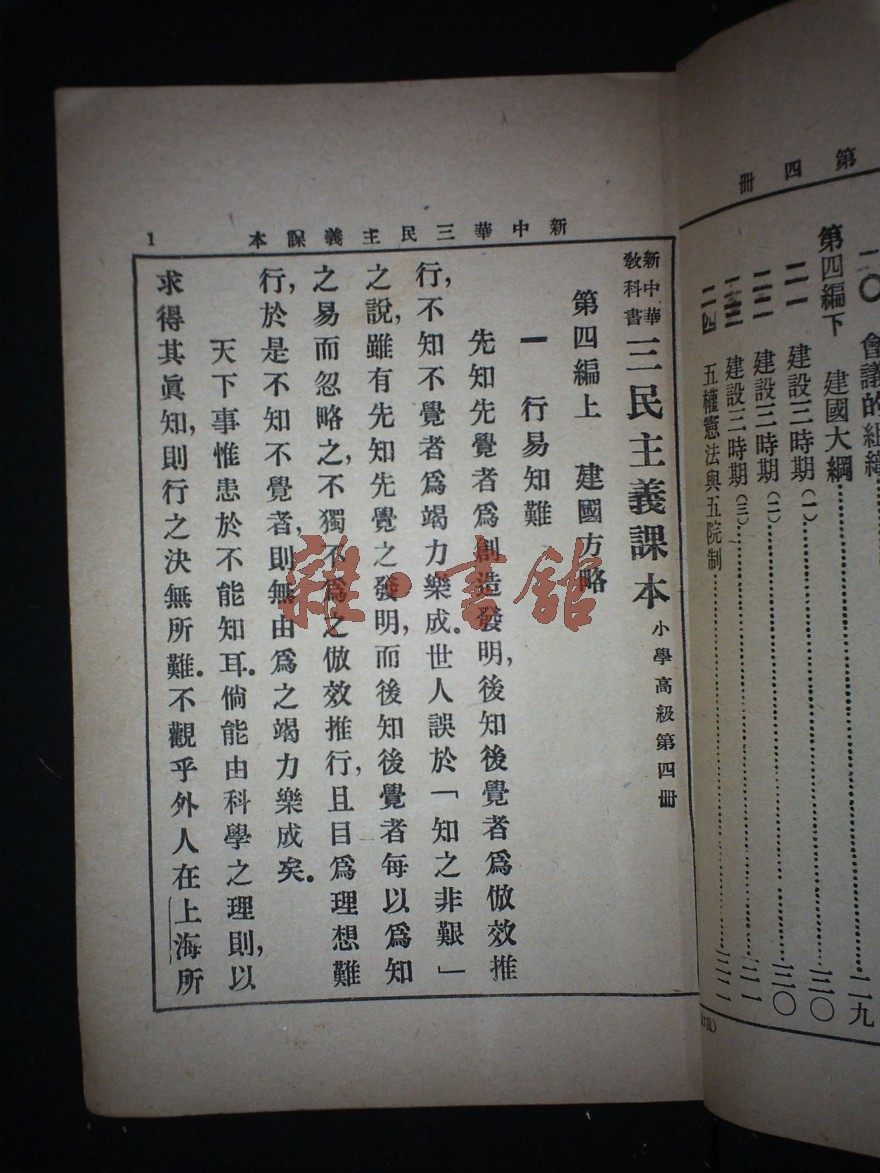 第四冊
二〇 會議的組織……二九
第四編下 建國大綱……三〇
二一 建設三時期(一)……三〇
二二 建設三時期(二)……三一
二三 建設三時期(三)
二四 五權憲法與五院制……三二
新中華三民主義課本
1
新中華教科書 三民主義課本 小學高級第四冊
第四編上 建國方略
一 行易知難
先知先覺者爲創造發明,後知後覺者爲倣效推
行,不知不覺者爲竭力樂成。世人誤於「知之非艱」
之說,雖有先知先覺之發明,而後知後覺者每以爲知
之易而忽略之,不獨不爲之倣效推行,且目爲理想難
行,於是不知不覺者,則無由爲之竭力樂成矣。
天下事惟患於不能知耳。倘能由科學之理則,以
求得其眞知,則行之決無所難。不觀乎外人在上海所
雜·書館